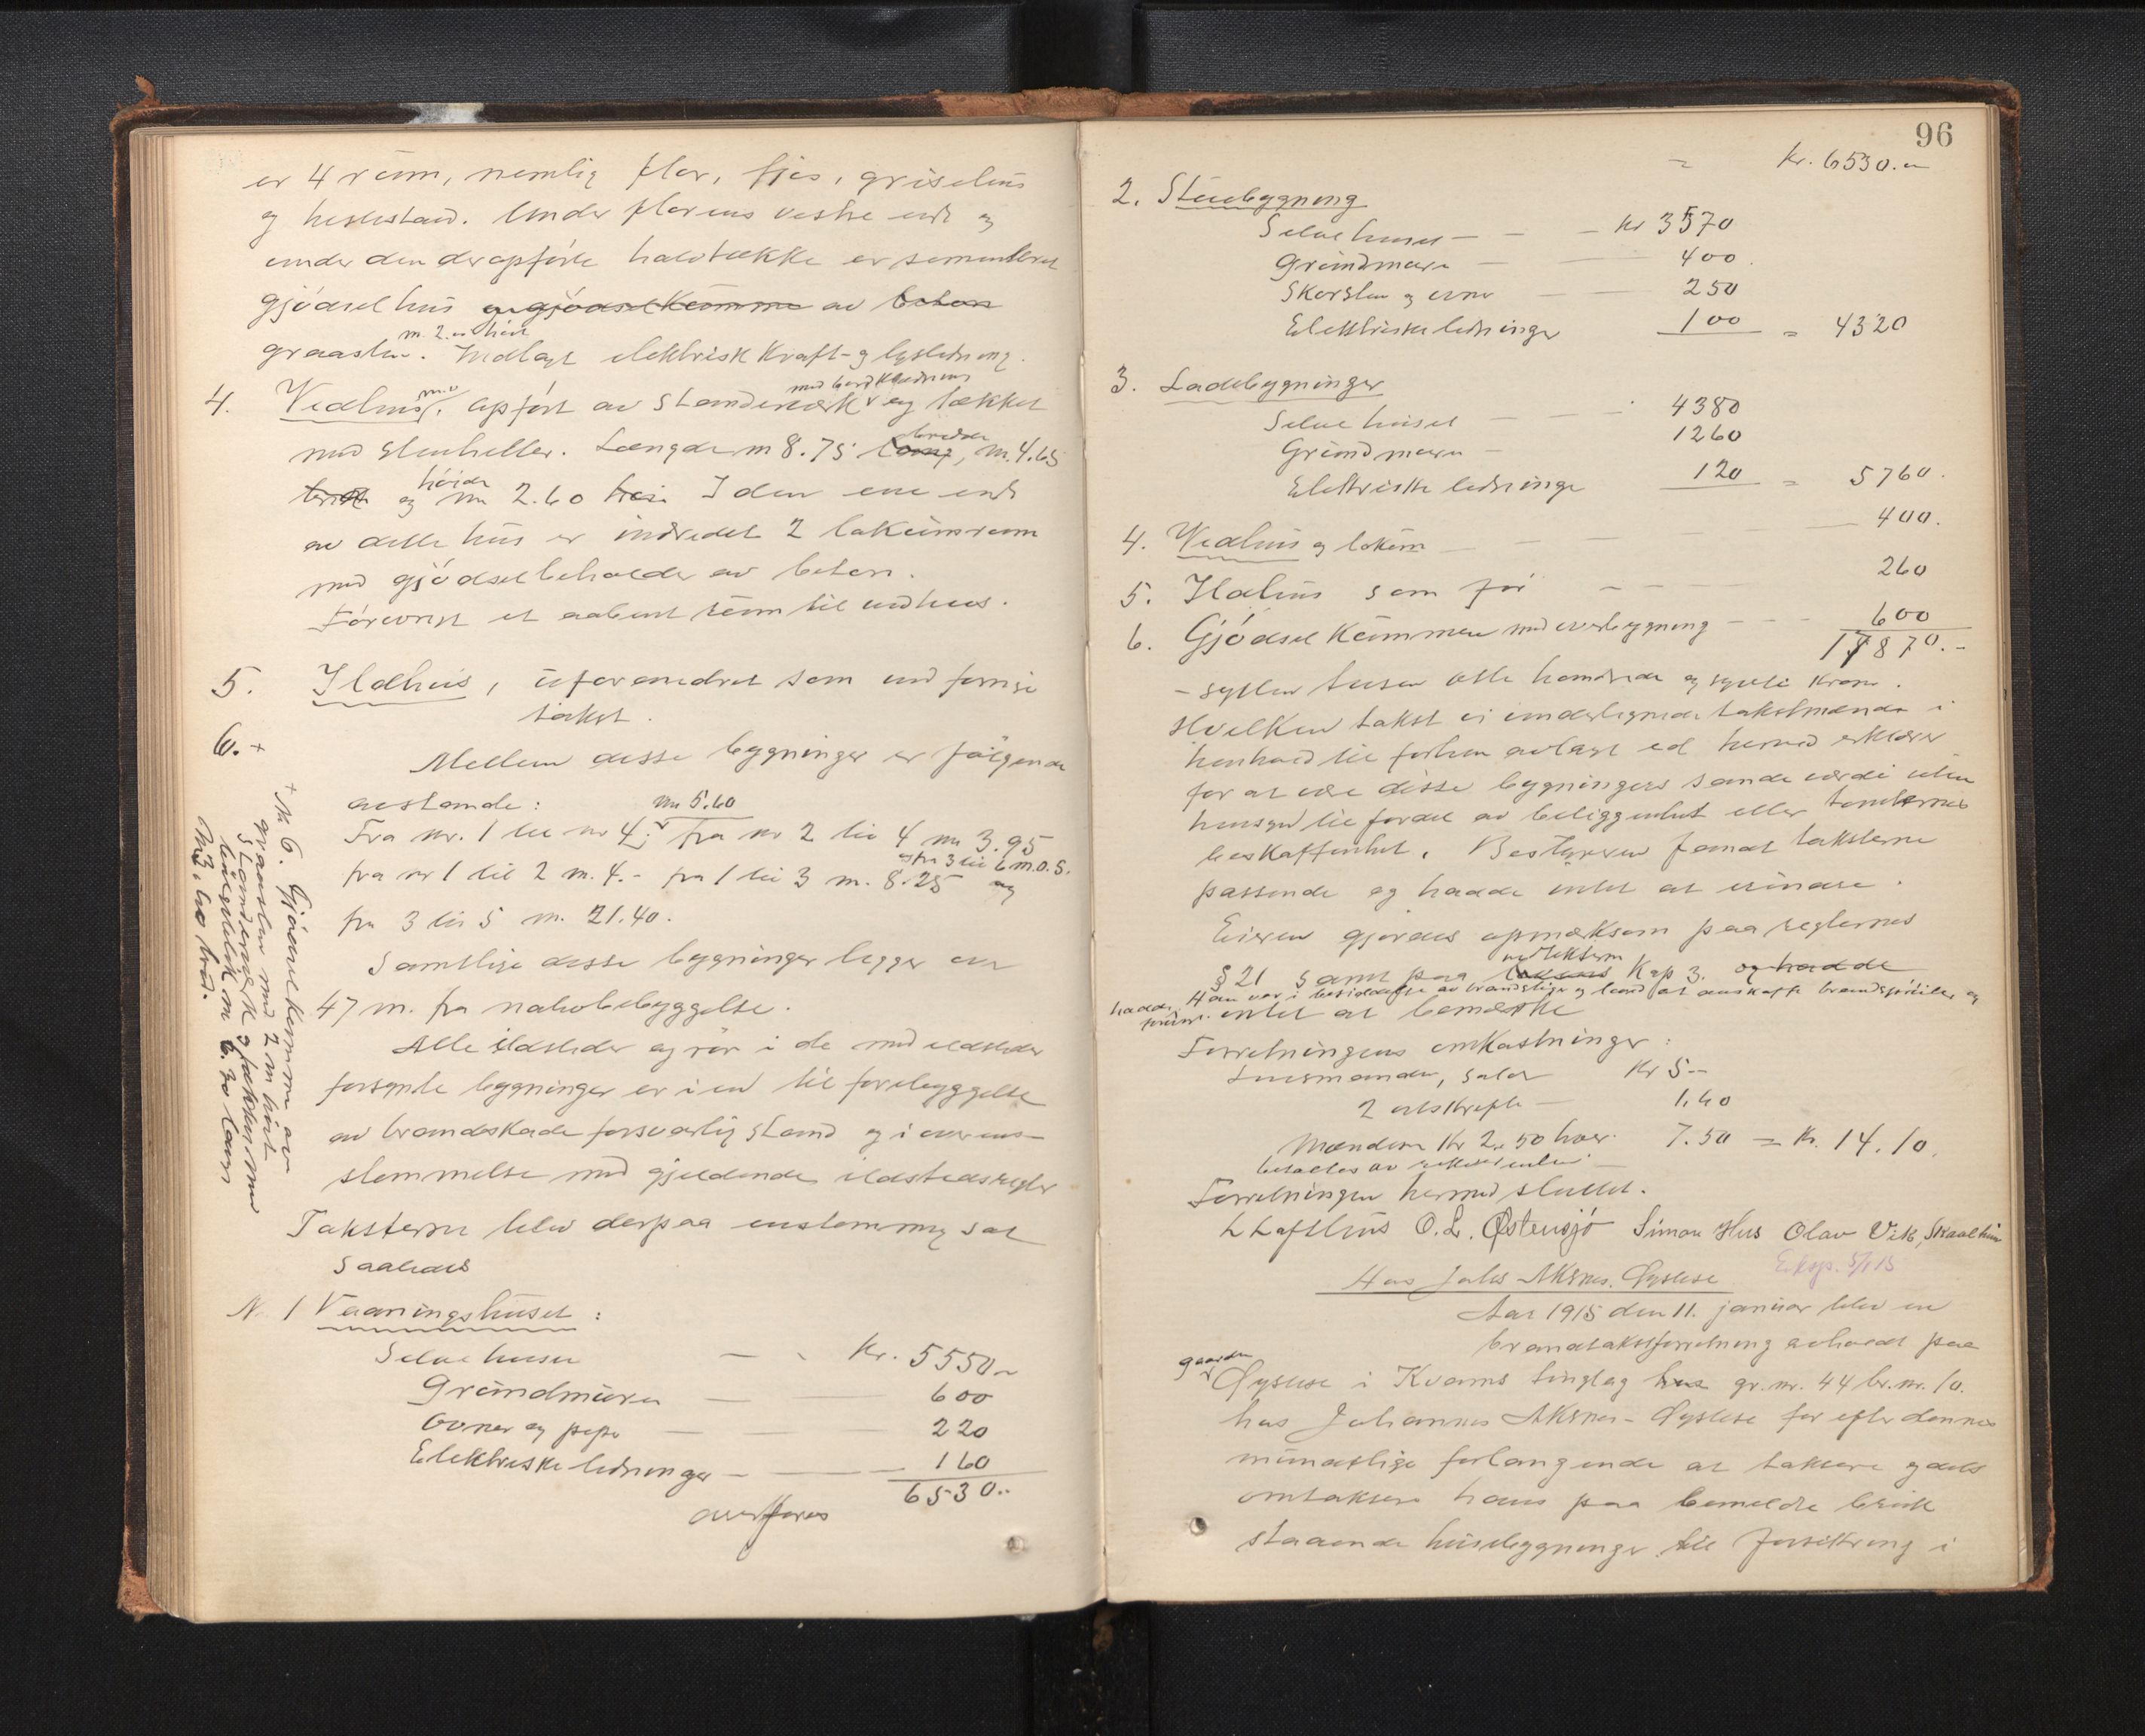 er 4 rum, nemlig flor, fjøs, grisehus
og hestestand. Under florens vestre ende og
under den deropførte halvtække er sementeret
gjødselhus og gjødselkumme av beton
m. 2. høit
graasten. Indlagt elektrisk kraft- og lysledning.
med bordklædning
4. Vedhus, opført av standerverk og tækket
med stenheller. Længde m 8.75 lang, bredde m. 4.65
bredt og høide m 2.60 høi. I den ene ende
av dette hus er indredet 2 lokumrum
med gjødselbeholder av beton.
Forøvrigt et aabent rum til vedhus.
5. Ildhus, uforandret som ved forrige
takst.
6. +
Mellem disse bygninger er følgende
avstande:
m 5.60
Fra nr. 1 til nr 4; fra nr 2 til 4 m 3.95
og fra 3 til 6 m. 0.5.
fra nr 1 til 2 m. 4.- fra 1 til 3 m. 8.25 og
fra 3 til 5 m. 21.40.
Samtlige disse bygninger ligger over
47 m. fra nabobebyggelse.
Alle ildsteder og rør i de med ildsteder
forsynte bygninger er i en til forebyggelse
av brandskade forsvarlig stand og i overens-
stemmelse med gjeldende ildstedsregler
Taksterne blev derpaa enstemmig sat
saaledes
N. 1 Vaaningshuset:
Selve huset Kr. 5550.-
Grundmuren 600
Ovner og piper 220
Elektriske ledninger 160
6530.-
overføres
+ Nr 6. Gjødselkumme av
graasten med 2 m høit
standerverk og tækket med
bølgeblik m 6.30 lang
m 3,60 bred.
96
= Kr. 6530.-
2. Stuebygning
Selve huset Kr 3570
Grundmuren 400
Skorsten og ovner 250
Elektriske ledninger 100 = 4320
3. Ladebygninger
Selve huset 4380
Grundmuren 1260
Elektriske ledninger 120 = 5760.
4. Vedhus og lokum 400.
5. Ildhus som før 260
6. Gjødselkummen med overbygning 600
17870.-
- sytten tusen otte hundrede og sytti kroner.
Hvilken takst vi underlegnede takstmænd i
henhold til forhen avlagt ed herved erklærer
for at være disse bygningers sande værdi uten
hensyn til fordel av beliggenhet eller tomternes
beskaffenhet. Bestyreren fandt taksterne
passende og hadde intet at erindre.
Eieren gjordes opmerksom paa reglernes
vedtekterne
§ 21 samt paa Kap 3. og hadde
Han var i besiddelse av brandstige og lovet at anskaffe brandsprøite og
hadde forøvrigt intet at bemerke
Forretningens omkostninger:
Lensmanden, salar Kr 5-
2 utskrifter 1.60
Mændene Kr 2,50 hver. 7.50 = Kr. 14.10.
betaltes av rekvirenten
Forretningen hermed sluttet.
L Lofthus O. L. Østensjø Simon Hus Olav Vik, Skaalheim
Eksp. 5/1 15
Hos Johs Aksnes. Øystese
Aar 1915 den 11. januar blev en
brandtakstforretning avholdt paa
gaarden
Øystese i Kvams tinglag gr. nr. 44 br. nr. 10.
hos Johannes Aksnes-Øystese for efter dennes
mundtlige forlangende at taksere og dels
omtaksere hans paa bemeldte bruk
staaende husebygninger til forsikring i